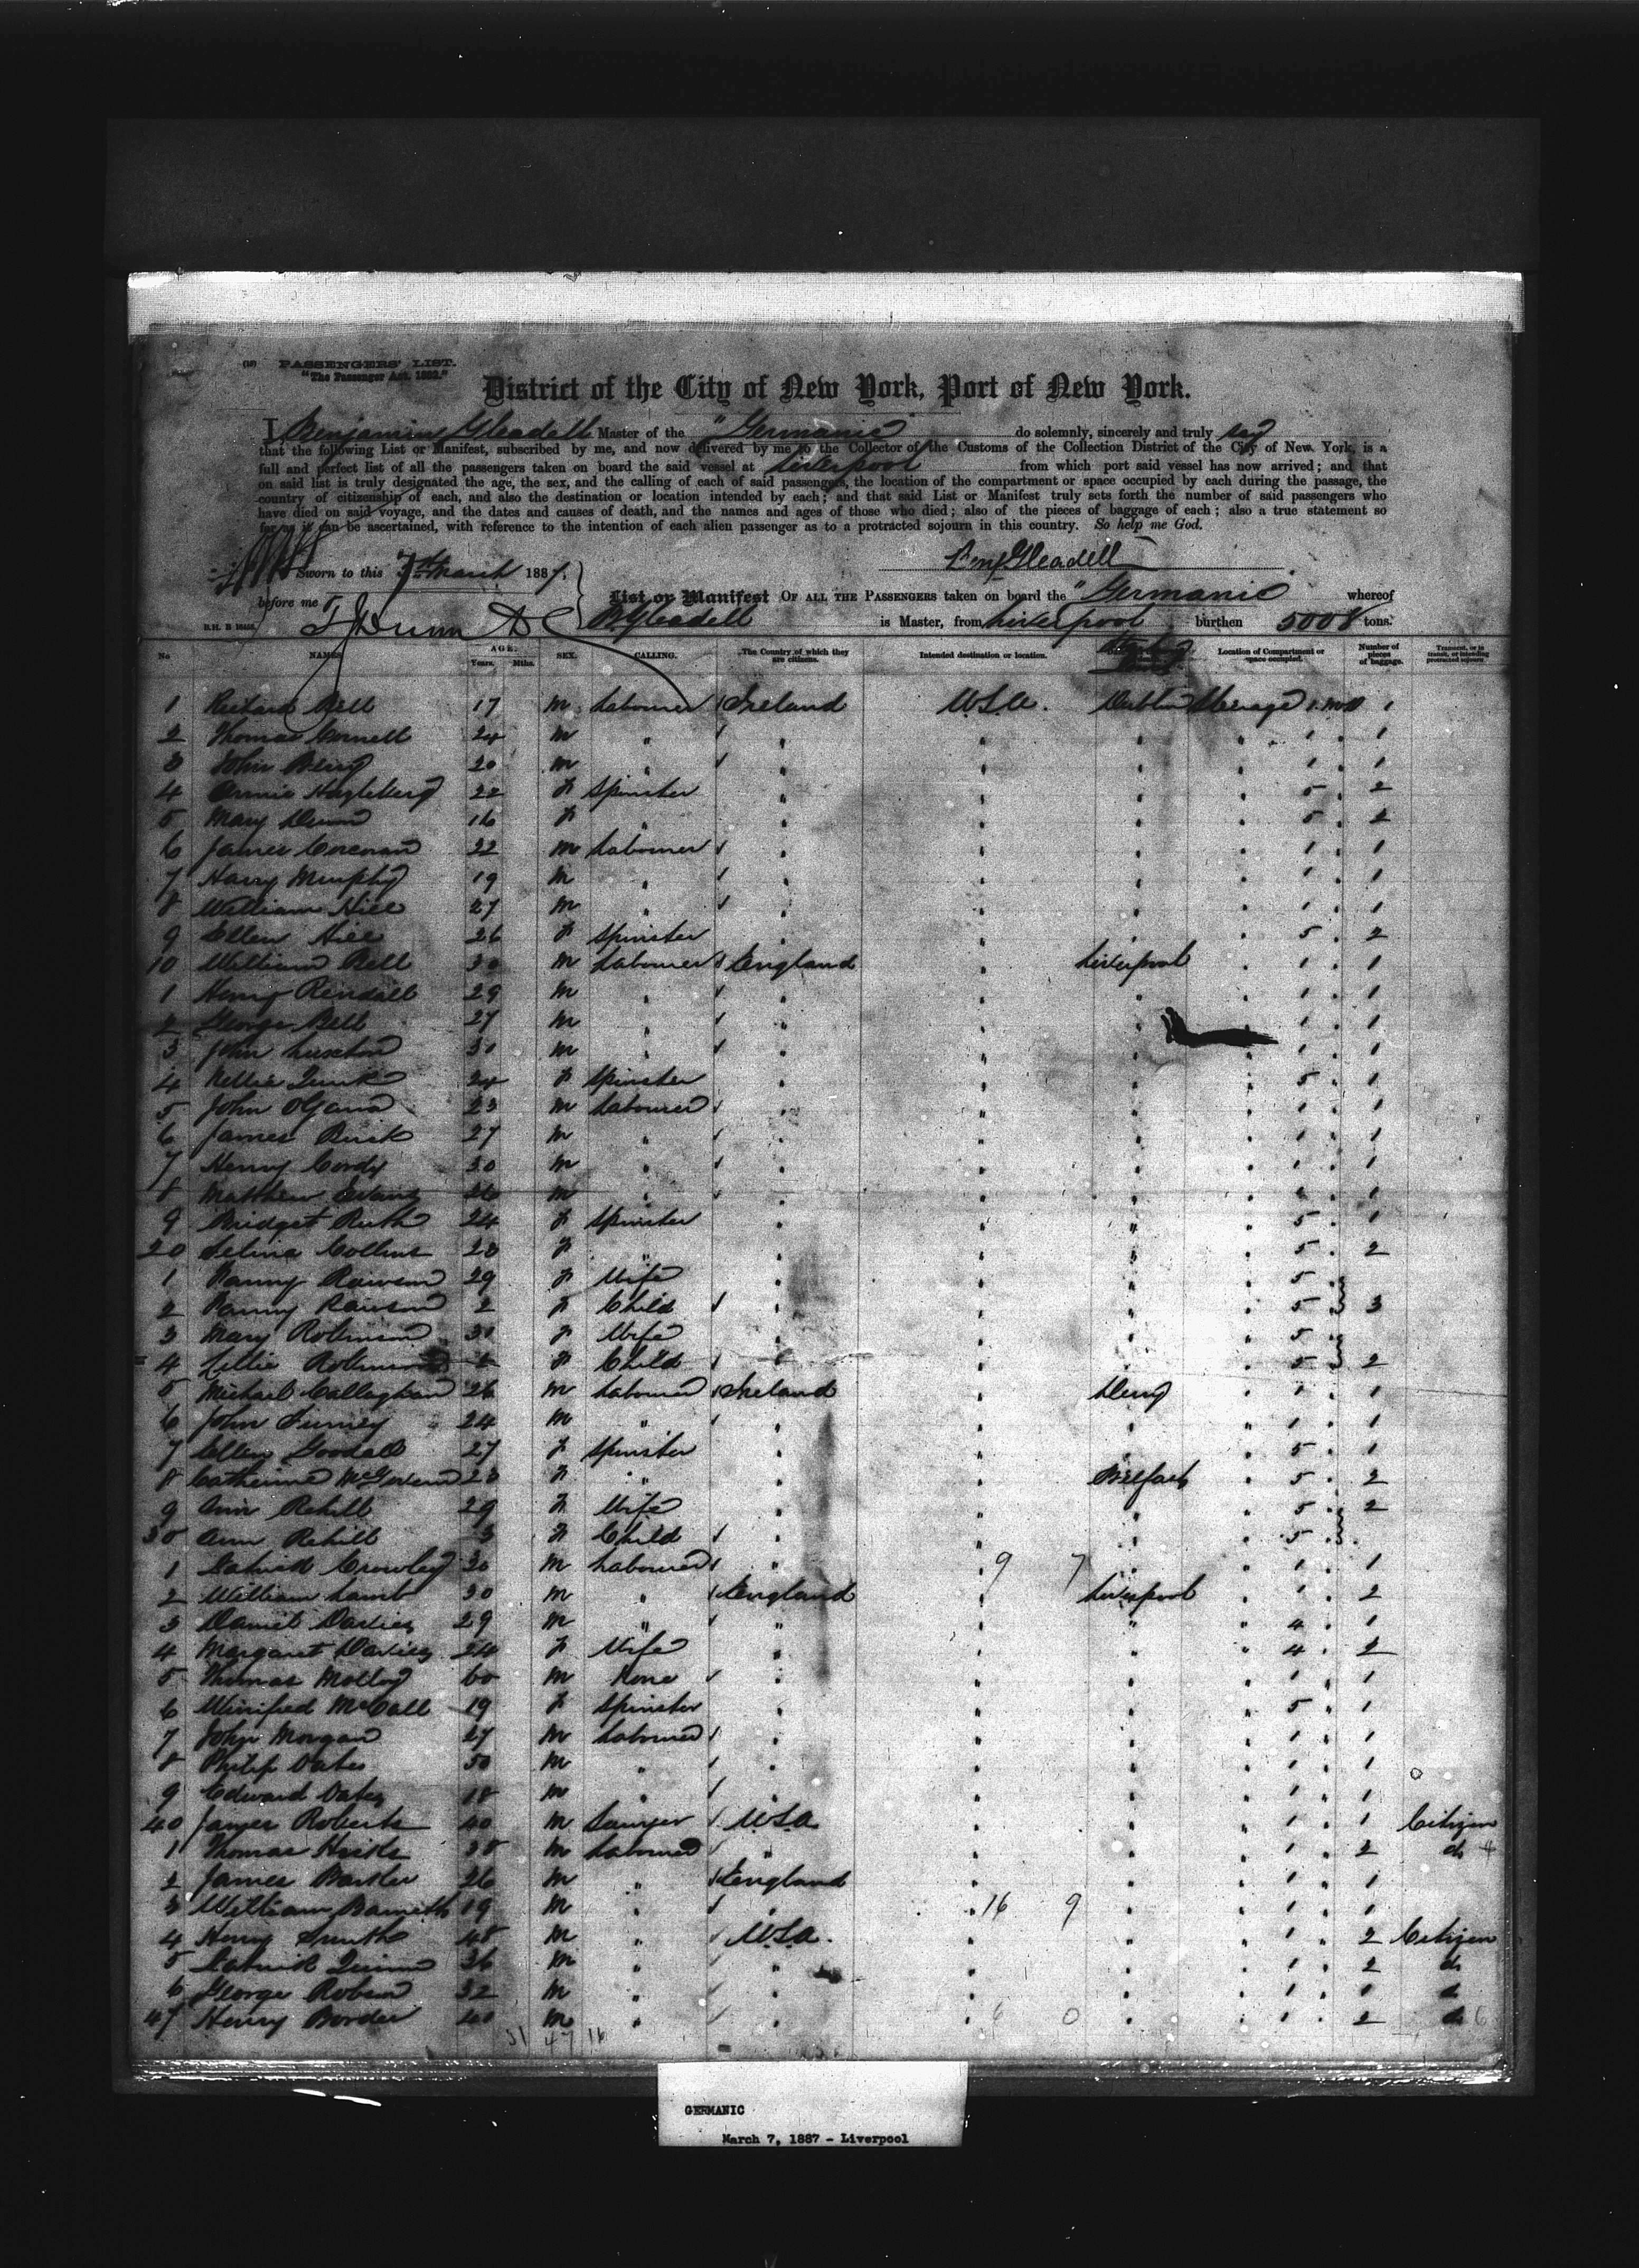 PASSENGERS' LIST.
"The Passenger Act, 1882."
District of the City of New York, Port of New York.
I, Benjamin Gleadell Master of the "Germanic" do solemnly, sincerely and truly say
that the following List or Manifest, subscribed by me, and now delivered by me to the Collector of the Customs of the Collection District of the City of New York, is a
full and perfect list of all the passengers taken on board the said vessel at Liverpool from which port said vessel has now arrived; and that
on said list is truly designated the age, the sex, and the calling of each of said passengers, the location of the compartment or space occupied by each during the passage, the
country of citizenship of each, and also the destination or location intended by each; and that said List or Manifest truly sets forth the number of said passengers who
have died on said voyage, and the dates and causes of death, and the names and ages of those who died; also of the pieces of baggage of each; also a true statement so
far as it can be ascertained, with reference to the intention of each alien passenger as to a protracted sojourn in this country. So help me God.
Sworn to this 7th March 1887, Benj Gleadell
before me
List or Manifest OF ALL THE PASSENGERS taken on board the "Germanic" whereof
B Gleadell is Master, from Liverpool burthen 5008 tons.
No NAMES AGE. Years. Mths. SEX. CALLING. The Country of which they are citizens. Intended destination or location. Location of Compartment or space occupied. Number of pieces of baggage. Transient, or in transit, or intending protracted sojourn
1 Richard Bell 17 m Labourer Ireland U.S.A. Dublin Steerage 1 1
2 Thomas Connell 24 m " " " " " 1 " 1
3 John 20 m " " " " " 1 " 1
4 Annie 22 F Spinster " " " " 5 " 2
5 Mary Dunn 16 F " " " " " 5 " 2
6 James Corcoran 22 m Labourer " " " " 1 " 1
7 Harry Murphy 19 m " " " " " 1 " 1
8 William Hill 27 m " " " " " 1 " 1
9 Ellen Hill 26 F Spinster " " " " 5 " 2
10 William Bell 30 m Labourer England " Liverpool " 1 " 1
1 Henry Rendall 29 m " " " " " 1 " 1
2 George Bell 27 m " " " " 1 " 1
3 John Luscton 31 m " " " " " 1 " 1
4 Nellie Quirk 24 F Spinster " " " " 5 " 1
5 John OGara 23 m Labourer " " " " 1 " 1
6 James Birk 27 m " " " " " 1 " 1
7 Henry Cordy 30 m " " " " " 1 " 1
8 Matthew Evans 26 m " " " " " 1 " 1
9 Bridget Ruth 24 F Spinster " " " " 5 " 1
20 Selina Collins 23 F " " " " " 5 " 2
1 Fanny Rawson 29 F Wife " " " " 5 "
2 Fanny Rawson 2 F Child " " " " 5 " 3
3 Mary Robinson 31 F Wife " " " " 5 "
4 Lillie Robinson F Child " " " " 5 2
5 Michael Callaghan 26 m Labourer Ireland " Derry " 1 " 1
6 John 24 m " " " " " 1 " 1
7 Ellen Goodall 27 F Spinster " " " " 5 " 1
8 Catherine McGovern 23 F " " " Belfast " 5 " 2
9 Ann Rehill 29 F Wife " " " " 5 " 2
30 Ann Rehill 3 F Child " " " " 5 "
1 Patrick Crowley 20 m Labourer " " 9 7 " " 1 1
2 William Lamb 30 m " England " Liverpool " 1 " 2
3 Daniel Davies 29 m " " " " " 4 " 1
4 Margaret Davies 24 F Wife " " " " 4 " 2
5 Thomas Molloy 60 m None " " " " 1 " 1
6 Winifred McCall 19 F Spinster " " " " 5 " 1
7 John Morgan 27 m Labourer " " " " 1 " 1
8 Philip Oates 50 m " " " " " 1 " 1
9 Edward Oates 18 m " " " " " 1 " 1
40 James Roberts 40 m Sawyer U.S.A. " " " 1 " 1 Citizen
1 Thomas Hicks 38 m Labourer " " " " 1 " 2 do 4
2 James Barker 26 m " England " " " 1 " 1
3 William 19 m " " " 16 9 " " 1 " 1
4 Henry Smith 48 m " U.S.A. " " " 1 " 2 Citizen
5 Patrick Quinn 26 m " " " " " 1 " 2 do
6 George Robson 32 m " " " " " 1 " 1 do
47 Henry Border 40 m " " " 6 0 " " 1 " 2 do 6
31 47 16
GERMANIC
March 7, 1887 - Liverpool